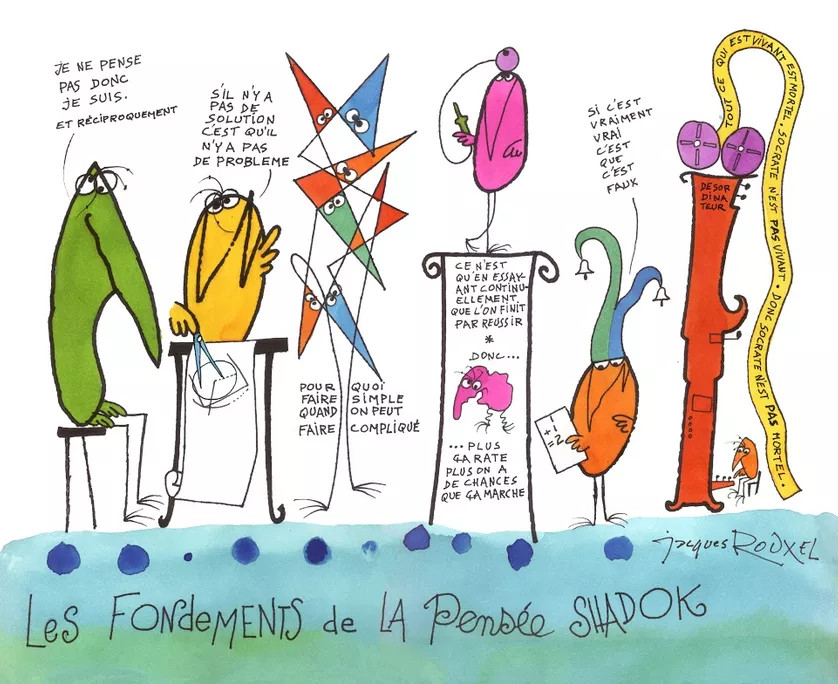 JE NE PENSE
PAS DONC
JE SUIS.
ET RÉCIPROQUEMENT
S'IL N'Y A
PAS DE
SOLUTION
C'EST QU'IL
N'Y A PAS
DE PROBLEME
POUR QUOI
FAIRE SIMPLE
QUAND ON PEUT
FAIRE COMPLIQUÉ
CE N'EST
QU'EN ESSAY-
ANT CONTINU-
ELLEMENT
QUE L'ON FINIT
PAR REUSSIR
*
DONC...
...PLUS
ÇA RATE
PLUS ON A
DE CHANCES
QUE ÇA MARCHE
SI C'EST
VRAIMENT
VRAI
C'EST
QUE
C'EST
FAUX
1
+1
=2
TOUT CE QUI EST VIVANT EST MORTEL. SOCRATE N'EST PAS VIVANT. DONC SOCRATE N'EST PAS MORTEL.
DESOR
DINA
TEUR
jacques ROUXEL
Les FONDEMENTS de LA Pensée SHADOK